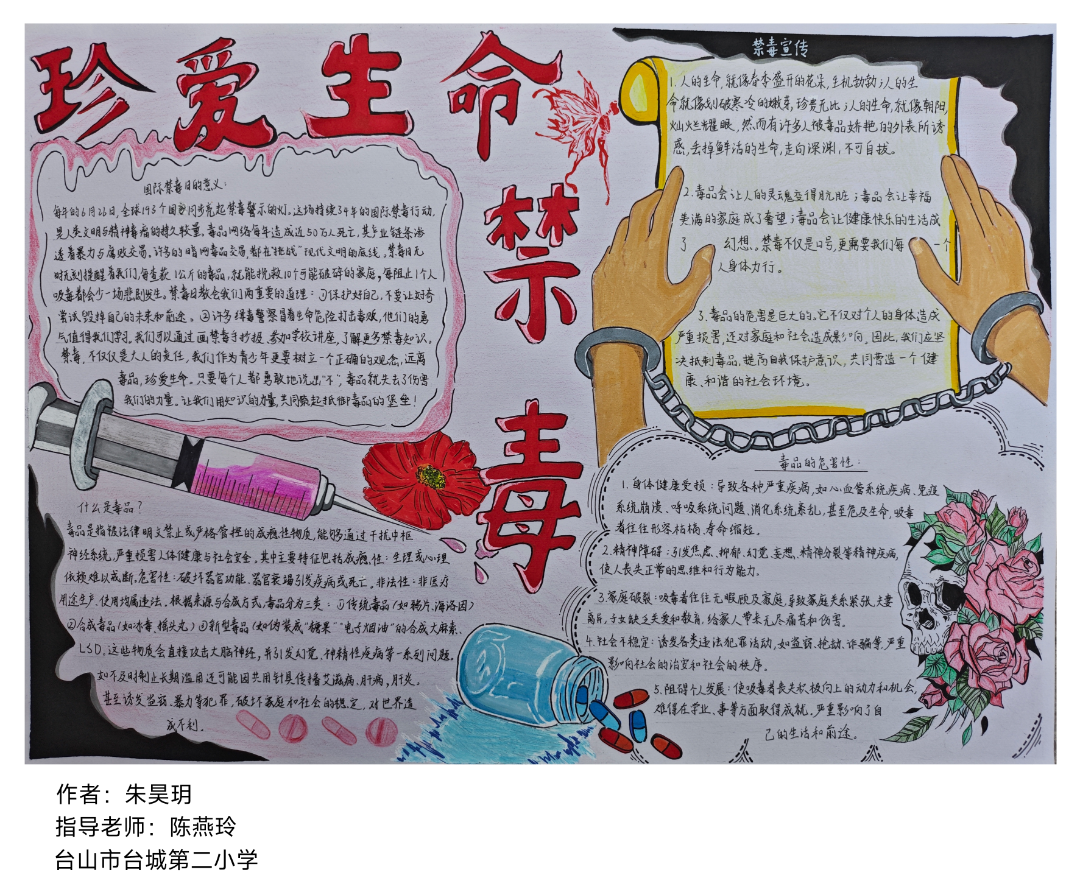 珍爱生命
禁毒
国际禁毒日的意义:
每年的6月26日,全球193个国家同步亮起禁毒警示的灯。这场持续34年的国际禁毒行动,
是人类文明与精神毒瘤的持久较量。毒品网络每年造成近50万人死亡,其产业链条渗
透着暴力与腐败交易。许多的暗网毒品交易,都在"挑战"现代文明的底线。禁毒日无
时无刻提醒着我们,每查获1公斤的毒品,就能挽救10个可能破碎的家庭,每阻止1个人
吸毒都会少一场悲剧发生。禁毒日教会我们两重要的道理:①保护好自己,不要让好奇
尝试毁掉自己的未来和前途。②许多缉毒警察冒着生命危险打击毒贩,他们的勇
气值得我们学习。我们可以通过画禁毒手抄报,参加学校讲座,了解更多禁毒知识。
禁毒,不仅仅是大人的责任,我们作为青少年更要树立一个正确的观念,远离
毒品,珍爱生命。只要每个人都勇敢地说出"不",毒品就失去了伤害
我们的力量。让我们用知识的力量,共同筑起抵御毒品的堡垒!
什么是毒品?
毒品是指被法律明文禁止或严格管控的成瘾性物质,能够通过干扰中枢
神经系统,严重损害人体健康与社会安全。其中主要特征包括成瘾性:生理或心理
依赖难以戒断。危害性:破坏器官功能、器官衰竭引发疾病或死亡。非法性:非医疗
用途生产、使用均属违法。根据来源与合成方式,毒品分为三类:①传统毒品(如鸦片、海洛因)
②合成毒品(如冰毒、摇头丸)③新型毒品(如伪装成"糖果""电子烟油"的合成大麻素、
LSD。这些物质会直接攻击大脑神经,并引发幻觉、神精性疾病等一系列问题。
如不及时制止长期滥用还可能因共用针具传播艾滋病、肝病、肝炎。
甚至诱发盗窃、暴力等犯罪,破坏家庭和社会的稳定,对世界造
成不利。
禁毒宣传
1.人的生命,就像春季盛开的花朵,生机勃勃;人的生
命就像划破寒冷的嫩芽,珍贵无比;人的生命,就像朝阳,
灿烂耀眼。然而有许多人被毒品娇艳的外表所诱
惑,丢掉鲜活的生命,走向深渊,不可自拔。
2.毒品会让人的灵魂变得肮脏;毒品会让幸福
美满的家庭成了奢望;毒品会让健康快乐的生活成
了幻想。禁毒不仅是口号,更需要我们每一个
人身体力行。
3.毒品的危害是巨大的,它不仅对个人的身体造成
严重损害,还对家庭和社会造成影响。因此,我们应坚
决抵制毒品,提高自我保护意识,共同营造一个健
康、和谐的社会环境。
毒品的危害性:
1.身体健康受损:导致各种严重疾病,如心血管系统疾病、免疫
系统崩溃、呼吸系统问题、消化系统紊乱,甚至危及生命,吸毒
者往往形容枯槁、寿命缩短。
2.精神障碍:引发焦虑、抑郁、幻觉、妄想、精神分裂等精神疾病,
使人丧失正常的思维和行为能力。
3.家庭破裂:吸毒者往往无暇顾及家庭,导致家庭关系紧张、夫妻
离异、子女缺乏关爱和教育,给家人带来无尽痛苦和伤害。
4.社会不稳定:诱发各类违法犯罪活动,如盗窃、抢劫、诈骗等,严重
影响社会的治安和社会的秩序。
5.阻碍个人发展:使吸毒者丧失积极向上的动力和机会,
难保在学业、事等方面取得成就,严重影响了自
己的生活和前途。
作者:朱昊玥
指导老师:陈燕玲
台山市台城第二小学